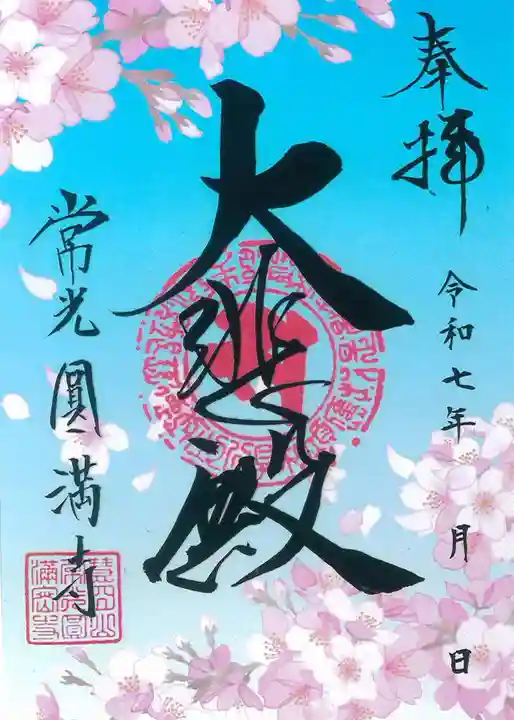 奉拝
令和七年 月 日
大悲殿
常光圓満寺